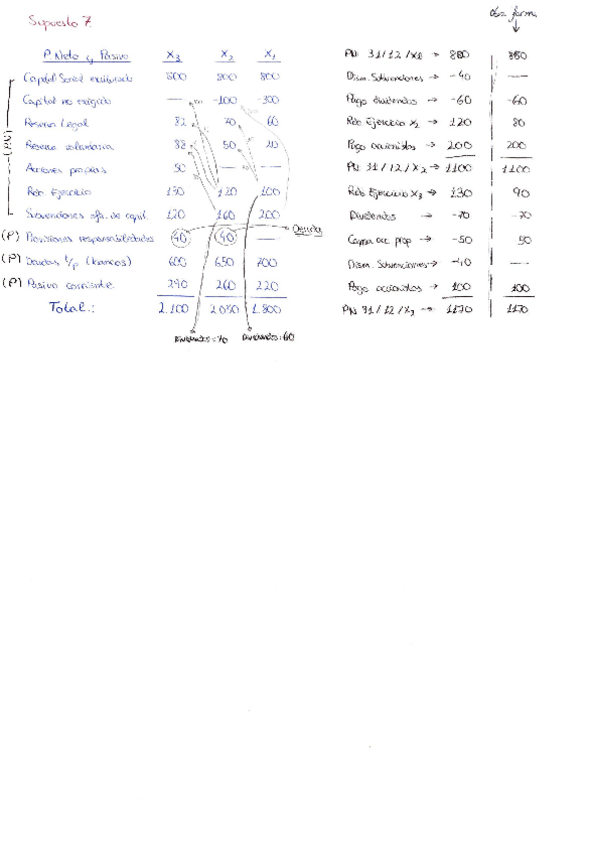 Supuesto 7.
otra forma
P. Neto y Pasivo X3 X2 X1
Capital Social escriturado 800 800 800
Capital no exigido — -100 -300
Reserva Legal 82 70 60
Reserva voluntaria 88 50 20
Acciones propias 50 — —
Rdo Ejercicio 130 120 100
Subvenciones ofic. de capit. 120 160 200
(P) Provisiones responsabilidades 40 40 —
(P) Deudas l/p (bancos) 600 650 700
(P) Pasivo corriente 290 260 220
Total.: 2.100 2.050 1.800
(PN)
Deuda
Dividendos = 70 Dividendos = 60
PN 31/12/X1 → 880 880
Dism. Subvenciones → -40 —
Pago dividendos → -60 -60
Rdo Ejercicio X2 → 120 80
Pago accionistas → 200 200
PN 31/12/X2 → 1100 1100
Rdo Ejercicio X3 → 130 90
Dividendos → -70 -70
Compra acc prop → -50 50
Dism. Subvenciones → -40 —
Pago accionistas → 100 100
PN 31/12/X3 → 1170 1170